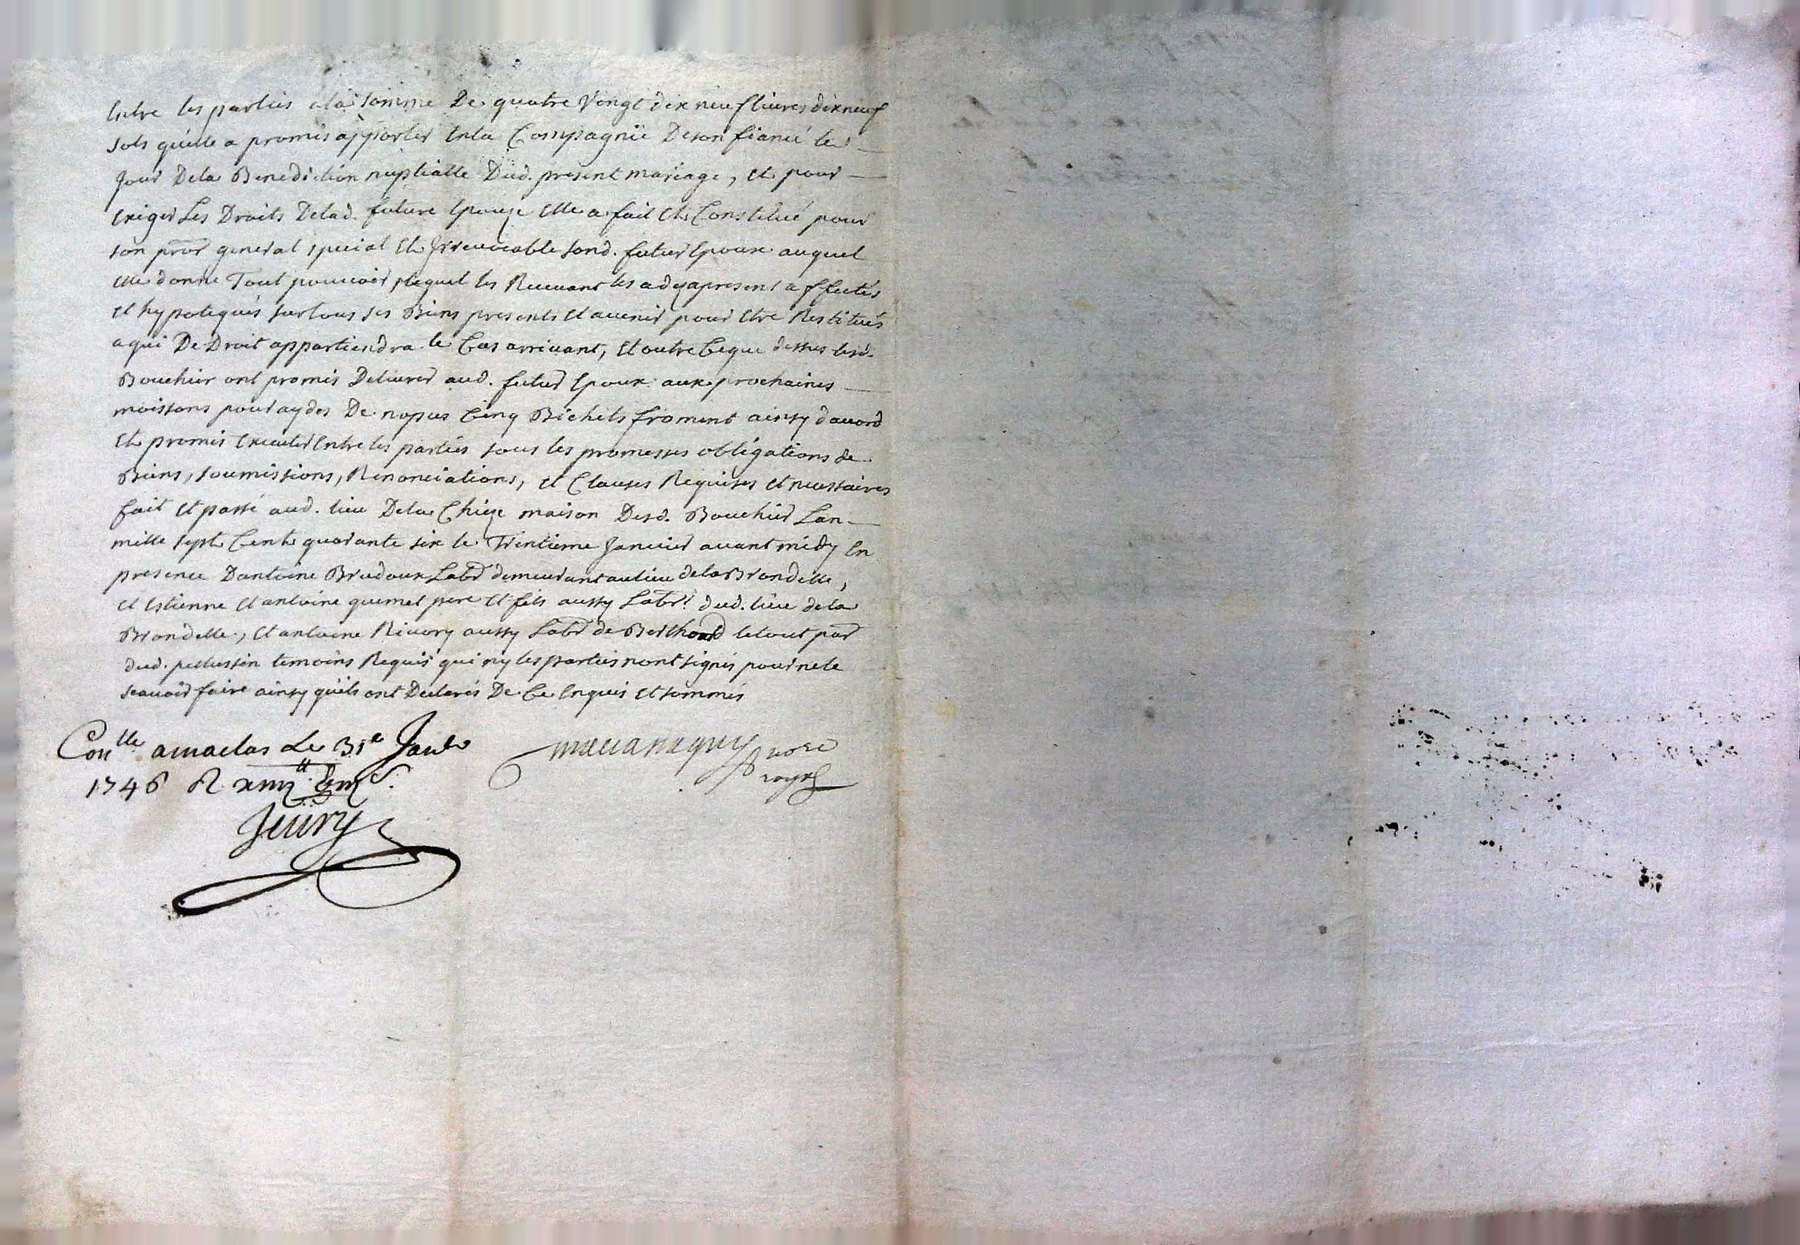 Entre les parties ala somme De quatre Vingt dix neuf livres dix neuf
sols quelle a promis apporter Enla Compagnie Deson fiancé le
jour Dela Benediction nuptialle Dud. present mariage, Et pour
Exiger Les Droits Delad. future Epouze Elle a fait Et Constitué pour
son pror general special Et Irrevocable sond. futur Epoux auquel
Elle donne Tout pouvoir, lequel les Recevant les a dejapresent affectés
Et hypotequés surtous ses Biens presents Et avenir pour Etre Restitués
aqui De Droit appartiendra le Cas arrivant, Et outre Ceque dessus lesd.
Bouchier ont promis Delivrer aud. futur Epoux aux prochaines
moissons pour aydes De nopces Cinq Bichets froment ainsy dacord
Et promis Executer Entre les parties sous les promesses obligations de
Biens, soumissions, Renonciations, Et Clauses Requises Et necessaires
fait Et passé aud. lieu Dela Chieze maison Desd. Bouchier Lan
mille sept Cent quarante six le Trentieme Janvier avant midy En
presence Dantoine Brudoux Labr demeurant au lieu dela Brondelle,
Et Estienne Et antoine quemet pere Et fils aussy Labrs dud. lieu dela
Brondelle, Et antoine Rivory aussy Labr de Berthoud letout par
dud. pelussin temoins Requis qui ny les parties nont signés pour ne le
scavoir faire ainsy quils ont Declarés De Ce Enquis Et sommés
Conlle amaclas Le 31e Janv
1746 R
Jeury